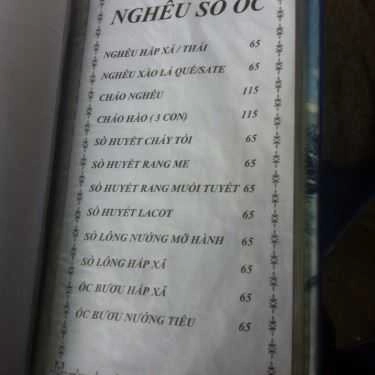 NGHÊU SÒ ỐC
NGHÊU HẤP XẢ / THÁI 65
NGHÊU XÀO LÁ QUẾ/SATE 65
CHÁO NGHÊU 115
CHÁO HÀO ( 3 CON) 115
SÒ HUYẾT CHÁY TỎI 65
SÒ HUYẾT RANG ME 65
SÒ HUYẾT RANG MUỐI TUYẾT 65
SÒ HUYẾT LACOT 65
SÒ LÔNG NƯỚNG MỠ HÀNH 65
SÒ LÔNG HẤP XẢ 65
ỐC BƯƠU HẤP XẢ 65
ỐC BƯƠU NƯỚNG TIÊU 65